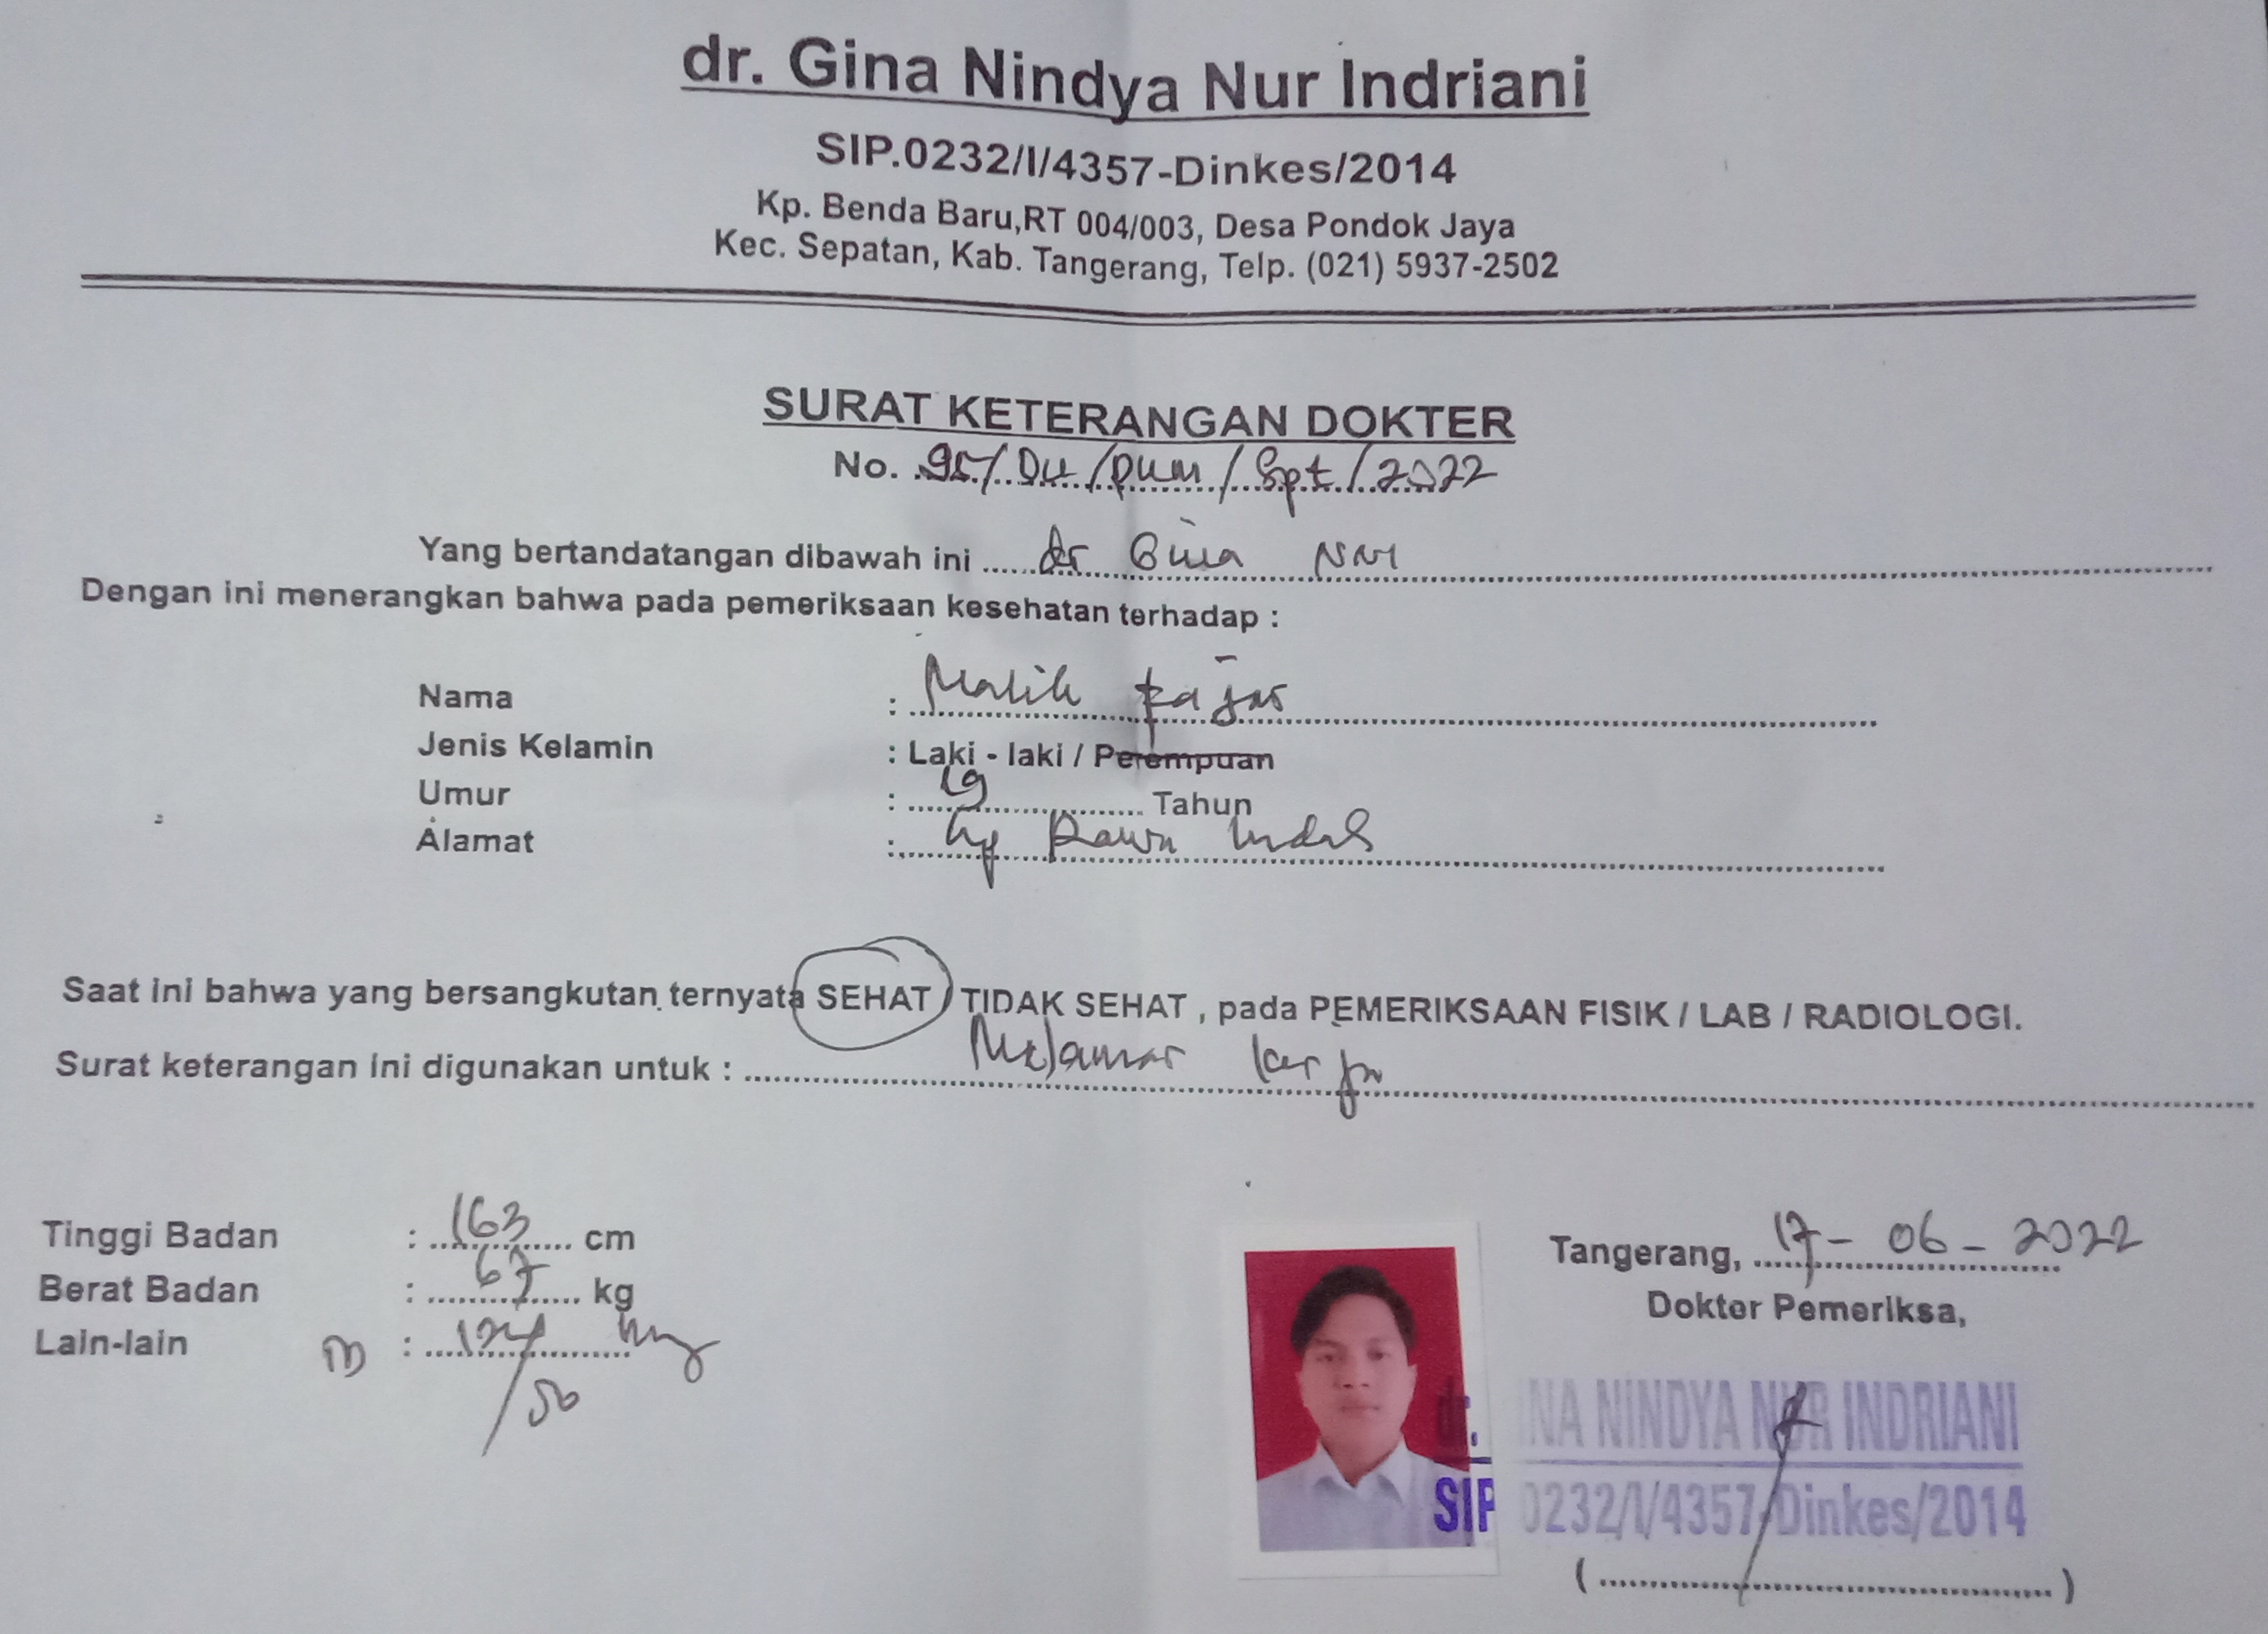 dr. Gina Nindya Nur Indriani
SIP.0232/I/4357-Dinkes/2014
Kp. Benda Baru,RT 004/003, Desa Pondok Jaya
Kec. Sepatan, Kab. Tangerang, Telp. (021) 5937-2502
SURAT KETERANGAN DOKTER
No. / / Spt / 2022
Yang bertandatangan dibawah ini dr Gina NNI
Dengan ini menerangkan bahwa pada pemeriksaan kesehatan terhadap :
Nama : Malik Fajar
Jenis Kelamin : Laki - laki / Perempuan
Umur : 19 Tahun
Alamat : Kp Rawa Indah
Saat ini bahwa yang bersangkutan ternyata SEHAT / TIDAK SEHAT , pada PEMERIKSAAN FISIK / LAB / RADIOLOGI.
Surat keterangan ini digunakan untuk : Melamar kerja
Tinggi Badan : 163 cm
Berat Badan : 67 kg
Lain-lain :
Tangerang, 17 - 06 - 2022
Dokter Pemeriksa,
dr. NA NINDYA NUR INDRIANI
SIP 0232/I/4357-Dinkes/2014
(....................)